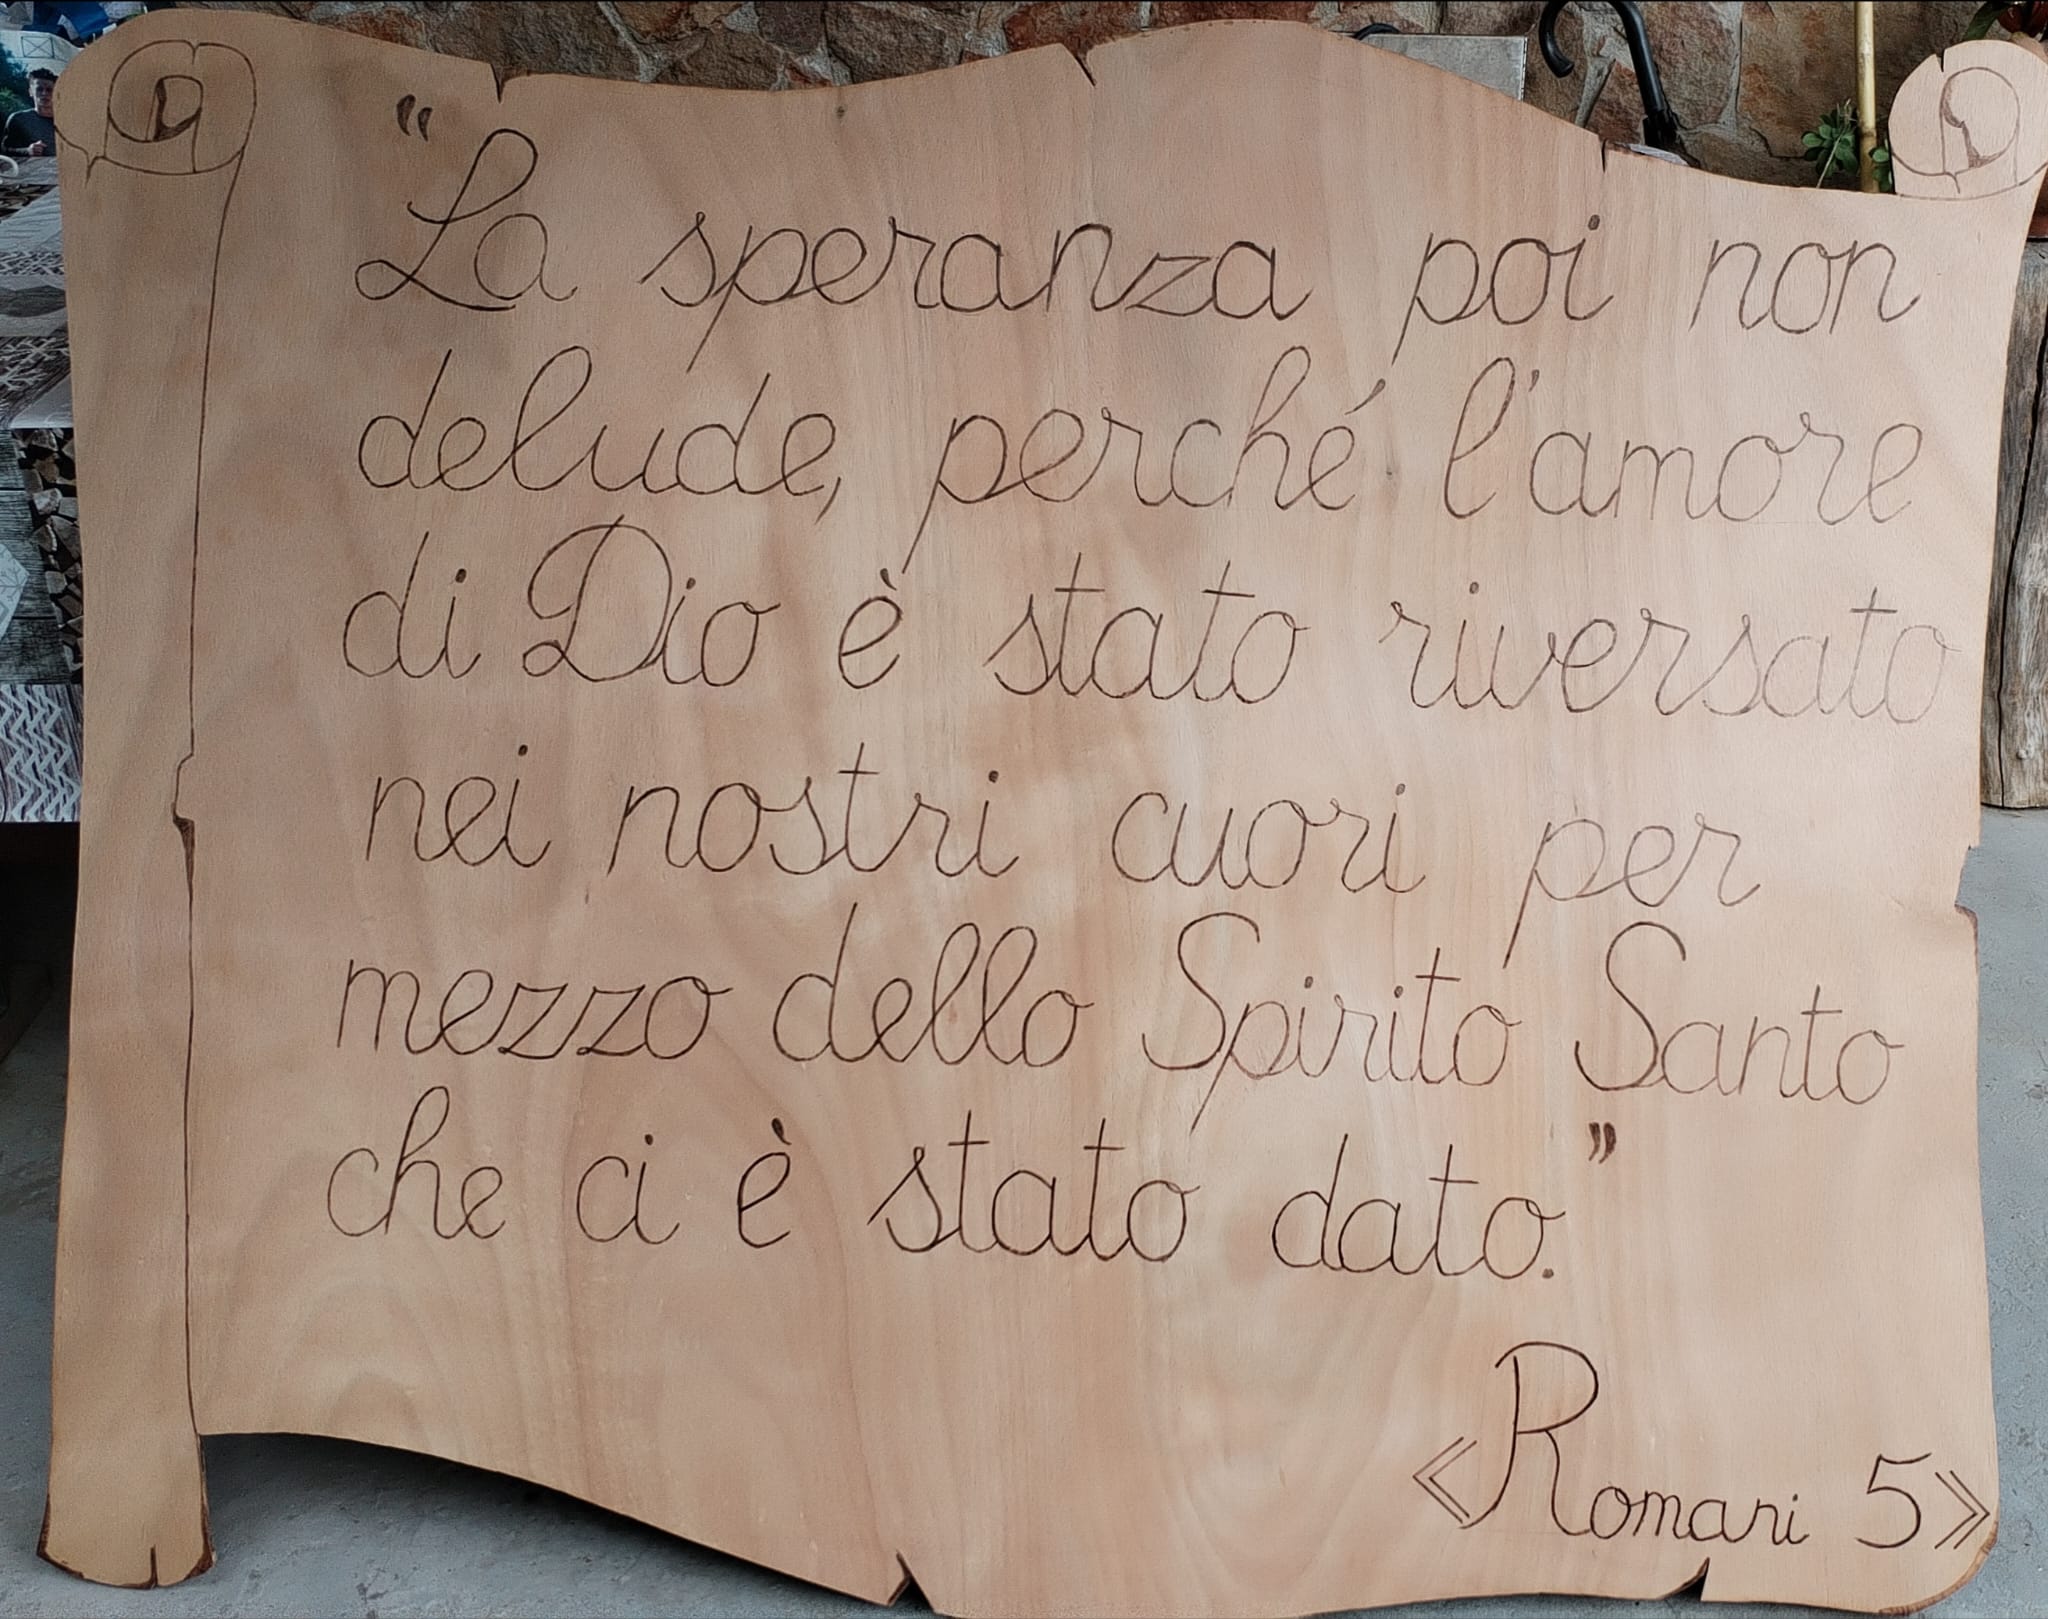 "La speranza poi non
delude, perché l'amore
di Dio è stato riversato
nei nostri cuori per
mezzo dello Spirito Santo
che ci è stato dato."
«Romani 5»